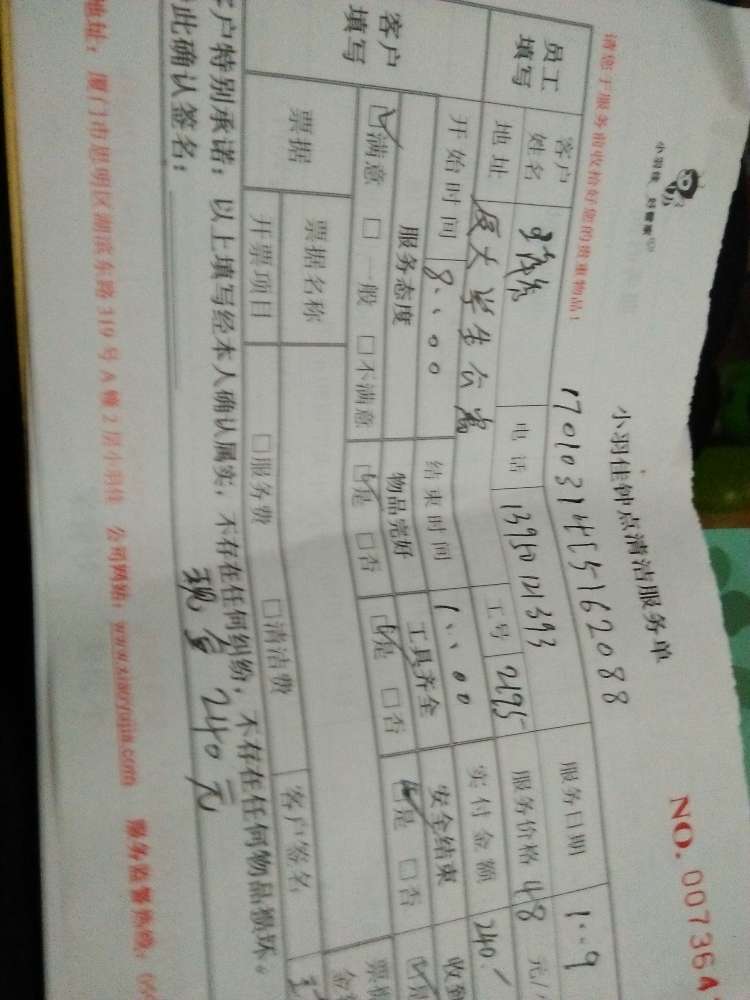 小羽佳 好管家
小羽佳钟点清洁服务单
NO. 007364
请您于服务前收拾好您的贵重物品!
1701031455162088
员工填写
客户姓名
电话 13950121393
服务日期 1..9
地址 厦大学生公寓
工号 2195
服务价格 48 元/
客户填写
开始时间 8:00
结束时间 1:00
实付金额 240
服务态度
物品完好
工具齐全
安全结束
收到
☑满意 □一般 □不满意
☑是 □否
☑是 □否
☑是 □否
☑是
票据
票据名称
客户签名
开票项目
□服务费 □清洁费
客户特别承诺:以上填写经本人确认属实,不存在任何纠纷,不存在任何物品损坏。
此确认签名:
现金240元
地址:厦门市思明区湖滨东路319号A幢2层小羽佳 公司网站:www.xiaoyujia.com 服务监督热线: